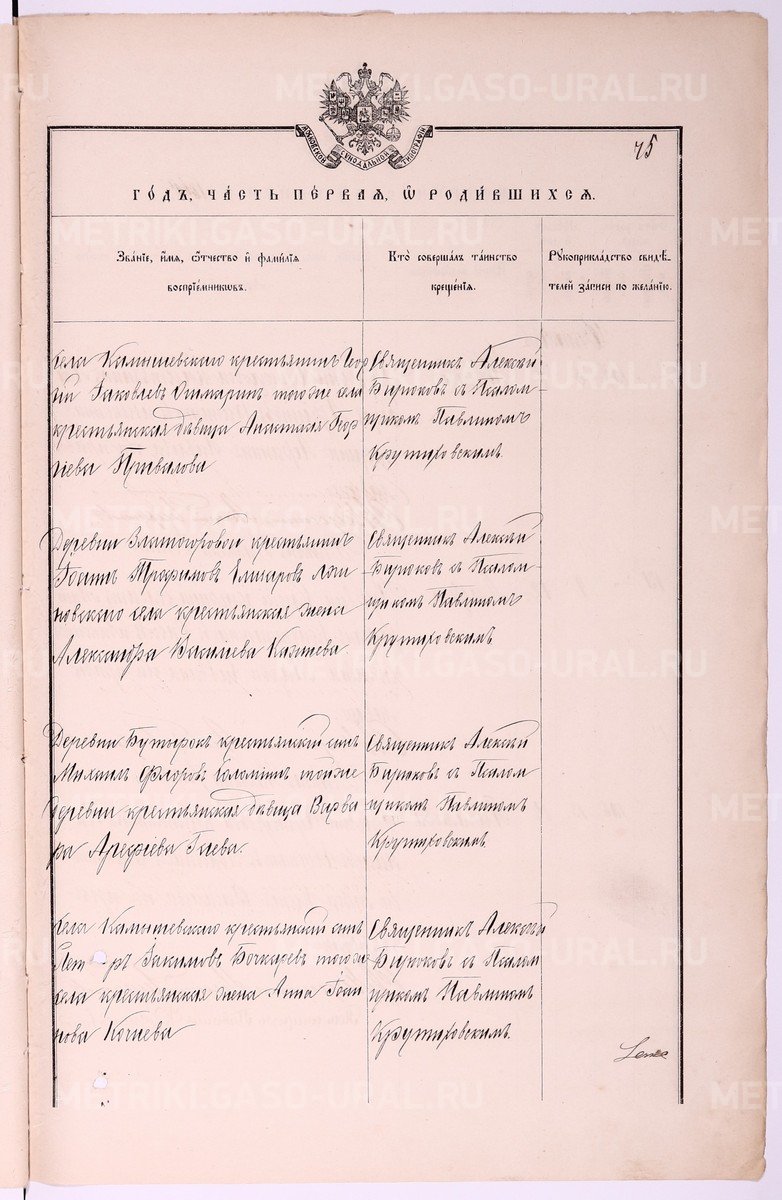 75
МОСКОВСКОЙ СѴНОДАЛЬНОЙ ТИПОГРАФІИ
ГО́ДЪ, ЧА́СТЬ ПЕ́РВАЯ, Ѽ РОДИ́ВШИХСѦ.
ЗВА́НІЕ, И҆́МѦ, Ѻ҆́ТЧЕСТВО И҆ ФАМИ́ЛІѦ
ВОСПРІЕ́МНИКѠВЪ.
КТО̀ СОВЕРША́ЛЪ ТА́ИНСТВО
КРЕЩЕ́НІѦ.
РꙊКОПРИКЛА́ДСТВО СВИДѢ́-
ТЕЛЕЙ ЗА́ПИСИ ПО ЖЕЛА́НІЮ.
Села Камышевскаго крестьянинъ Геор
гій Іаковлевъ Ошмаринъ тогоже села
крестьянская дѣвица Анастасія Геор
гіева Привалова
Священникъ Алексѣй
Бирюковъ съ Псалом
щикомъ Павлиномъ
Крутиховскимъ
Деревни Златогоровой крестьянинъ
Іоаннъ Трофимовъ Елизаровъ Логи
новскаго села крестьянская жена
Александра Василіева
Священникъ Алексѣй
Бирюковъ съ Псалом
щикомъ Павлиномъ
Крутиховскимъ
Деревни Бутырокъ крестьянскій сынъ
Михаилъ Флоровъ Соломеинъ тойже
деревни крестьянская дѣвица Варва
ра Арефіева Гаева.
Священникъ Алексѣй
Бирюковъ съ Псалом
щикомъ Павлиномъ
Крутиховскимъ
Села Камышевскаго крестьянскій сынъ
Іакимовъ Бочкаревъ тогоже
села крестьянская жена Анна Іоан
нова Кочнева
Священникъ Алексѣй
Бирюковъ съ Псалом
щикомъ Павлиномъ
Крутиховскимъ.
METRIKI.GASO-URAL.RU